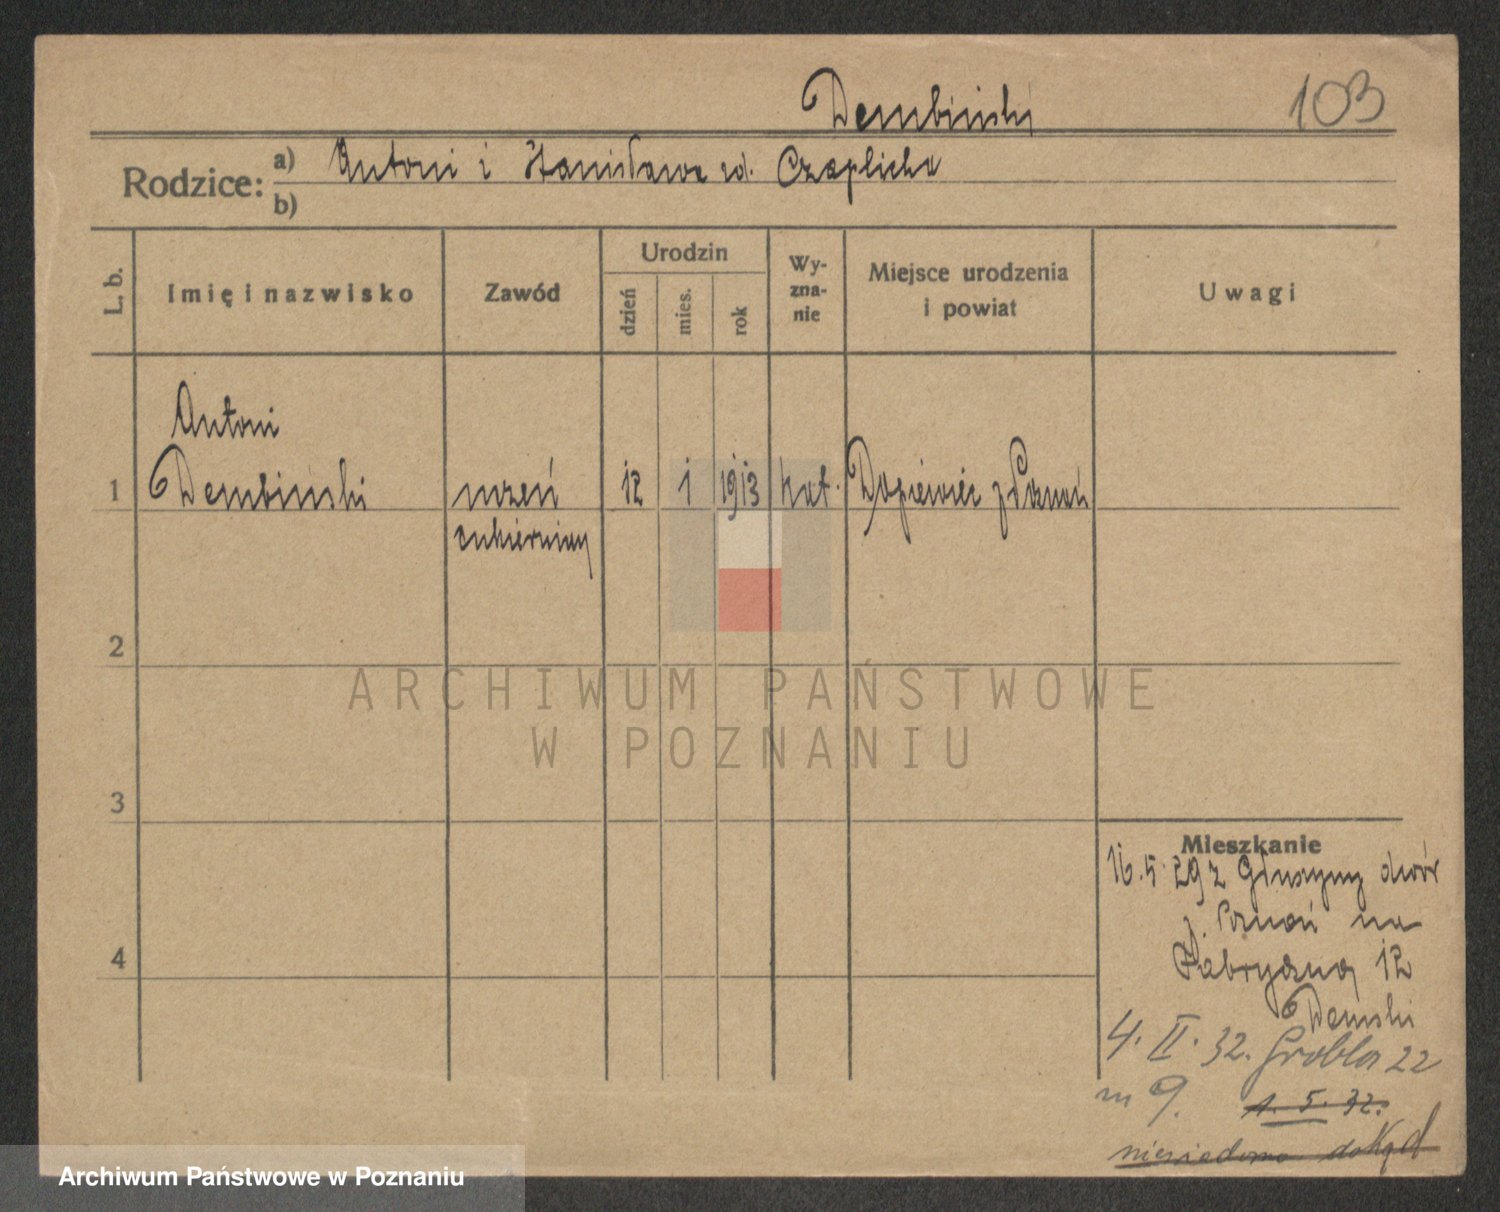 Dembiński
103
Rodzice: a) Antoni i Stanisława zd. Czaplicka
b)
L. b.
Imię i nazwisko
Zawód
Urodzin
dzień
mies.
rok
Wy-
zna-
nie
Miejsce urodzenia
i powiat
Uwagi
Antoni
1 Dembiński uczeń 12 1 1913 kat. Dopiewiec p Poznań
cukierniczy
2
3
4
Mieszkanie
16.5.29 z Głuszyny dwór
p. Poznań na
Fabryczną 12
Demski
4. II. 32. Grobla 22
m 9. 1. 5. 32.
niewiadomo dokąd
ARCHIWUM PAŃSTWOWE
W POZNANIU
Archiwum Państwowe w Poznaniu